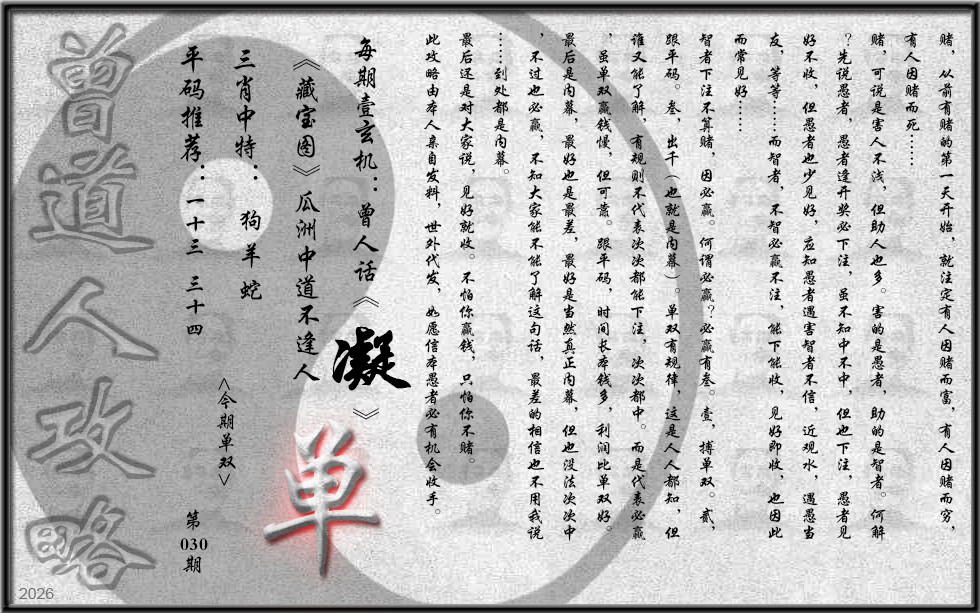 赌，从前有赌的第一天开始，就注定有人因赌而富，有人因赌而穷，
有人因赌而死……
赌，可说是害人不浅，但助人也多。害的是愚者，助的是智者。何解
？先说愚者，愚者逢开奖必下注，虽不知中不中，但也下注，愚者见
好不收，但愚者也少见好，应知愚者遇害智者不信，近观水，遇愚当
友，等等……而智者，不智必赢不注，能下能收，见好即收，也因此
而常见好……
智者下注不算赌，因必赢。何谓必赢？必赢有叁。壹，搏单双。贰，
跟平码。叁，出千（也就是内幕）。单双有规律，这是人人都知，但
谁又能了解，有规则不代表次次都能下注，次次都中。而是代表必赢
，虽单双赢钱慢，但可靠。跟平码，时间长本钱多，利润比单双好。
最后是内幕，最好也是最差，最好是当然真正内幕，但也没法次次中
，不过也必赢，不知大家能不能了解这句话，最差的相信也不用我说
……到处都是内幕。
最后还是对大家说，见好就收。不怕你赢钱，只怕你不赌。
此攻略由本人亲自发料，世外代发，如愿信本愚者必有机会收手。
每期壹玄机：曾人话《凝》
《藏宝图》瓜洲中道不逢人
单
三肖中特：狗羊蛇
<今期单双>
平码推荐：一十三 三十四
第
030
期
曾道人攻略
2026